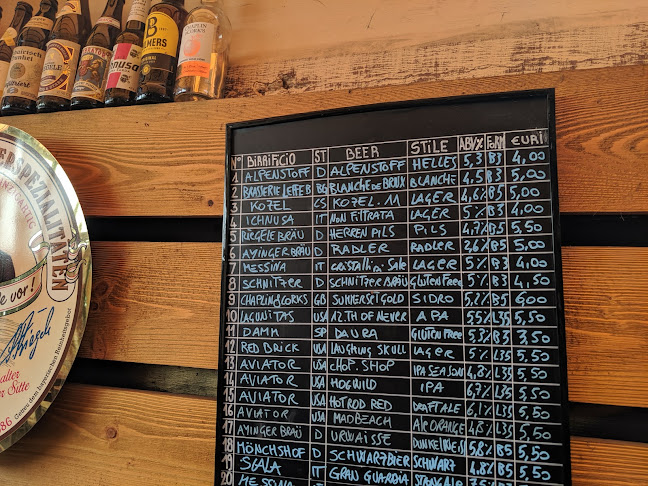 N° BIRRIFICIO ST BEER STILE ABV% FORM €URI
1 ALPENSTOFF D ALPENSTOFF HELLES 5,3 B3 4,00
2 BRASSERIE LEFEB BG BLANCHE DE BRUX BLANCHE 4,5 B5 5,00
3 KOZEL CS KOZEL 11 LAGER 4,6% B5 5,00
4 ICHNUSA IT NON FILTRATA LAGER 5% B3 4,00
5 RIEGELE BRÄU D HERREN PILS PILS 4,7% B5 5,00
6 AYINGER BRÄU D RADLER RADLER 2,6% B5 5,00
7 MESSINA IT CRISTALLI DI SALE LAGER 5% B3 4,00
8 SCHNITZER D SCHNITZER BRÄU GLUTEN FREE 5% B3 4,50
9 CHAPLIN&CORKS GB SUMERSET GOLD SIDRO 5,2% B5 6,00
10 LAGUNITAS USA 12TH OF NEVER APA 5,5% L35 5,50
11 DAMM SP DAURA GLUTEN FREE 5,3% B3 3,50
12 RED BRICK USA LAUGHING SKULL LAGER 5% L35 5,50
13 AVIATOR USA CHOP. SHOP IPA SEASON 4,8% L35 5,50
14 AVIATOR USA HOGWILD IPA 6,7% L35 5,50
15 AVIATOR USA HOT ROD RED DRAFT ALE 6,1% L35 5,50
16 AVIATOR USA MADBEACH ALE ORANGE 4,5% L35 5,50
17 AYINGER BRÄU D URWAISSE DUNKELWEISS 5,8% B5 5,50
18 MÖNCHSHOF D SCHWARZBIER SCHWARZ 4,8% B5 5,50
19 SGALA IT GRAN GUARDIA
20 MESSINA
SPEZIALITÄTEN
vor!
Riegele
alter
Sitte
Getreu dem bayerischen Reinheitsgebot